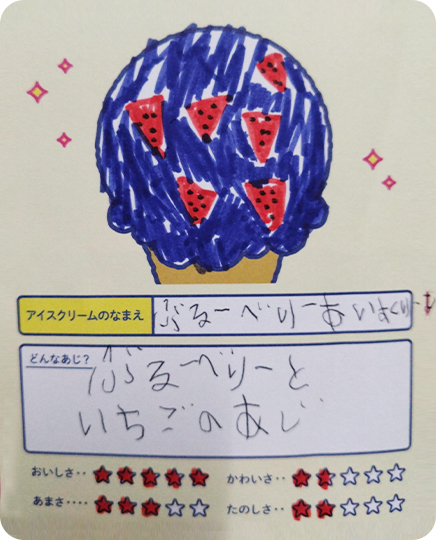 アイスクリームのなまえ
ぶるーべりーあいすくりーむ
どんなあじ?
ぶるーべりーと
いちごのあじ
おいしさ‥ ★★★★★
かわいさ‥ ★★☆☆☆
あまさ‥‥ ★★★☆☆
たのしさ‥ ★★☆☆☆